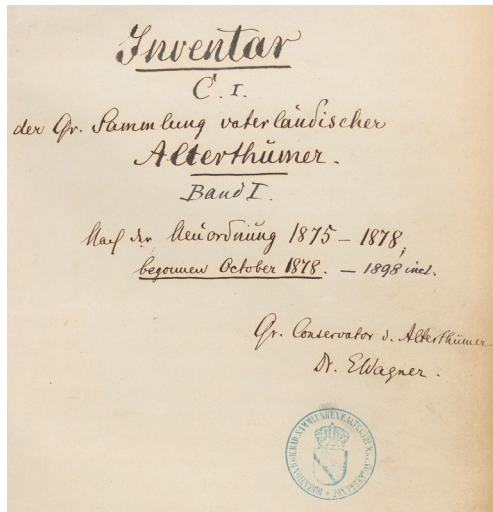 Inventar
C. I.
der Gr. Sammlung vaterländischer
Alterthümer.
Band I.
Nach der Neuordnung 1875 – 1878,
begonnen October 1878. – 1898 incl.
Gr. Conservator d. Alterthümer
Dr. EWagner.